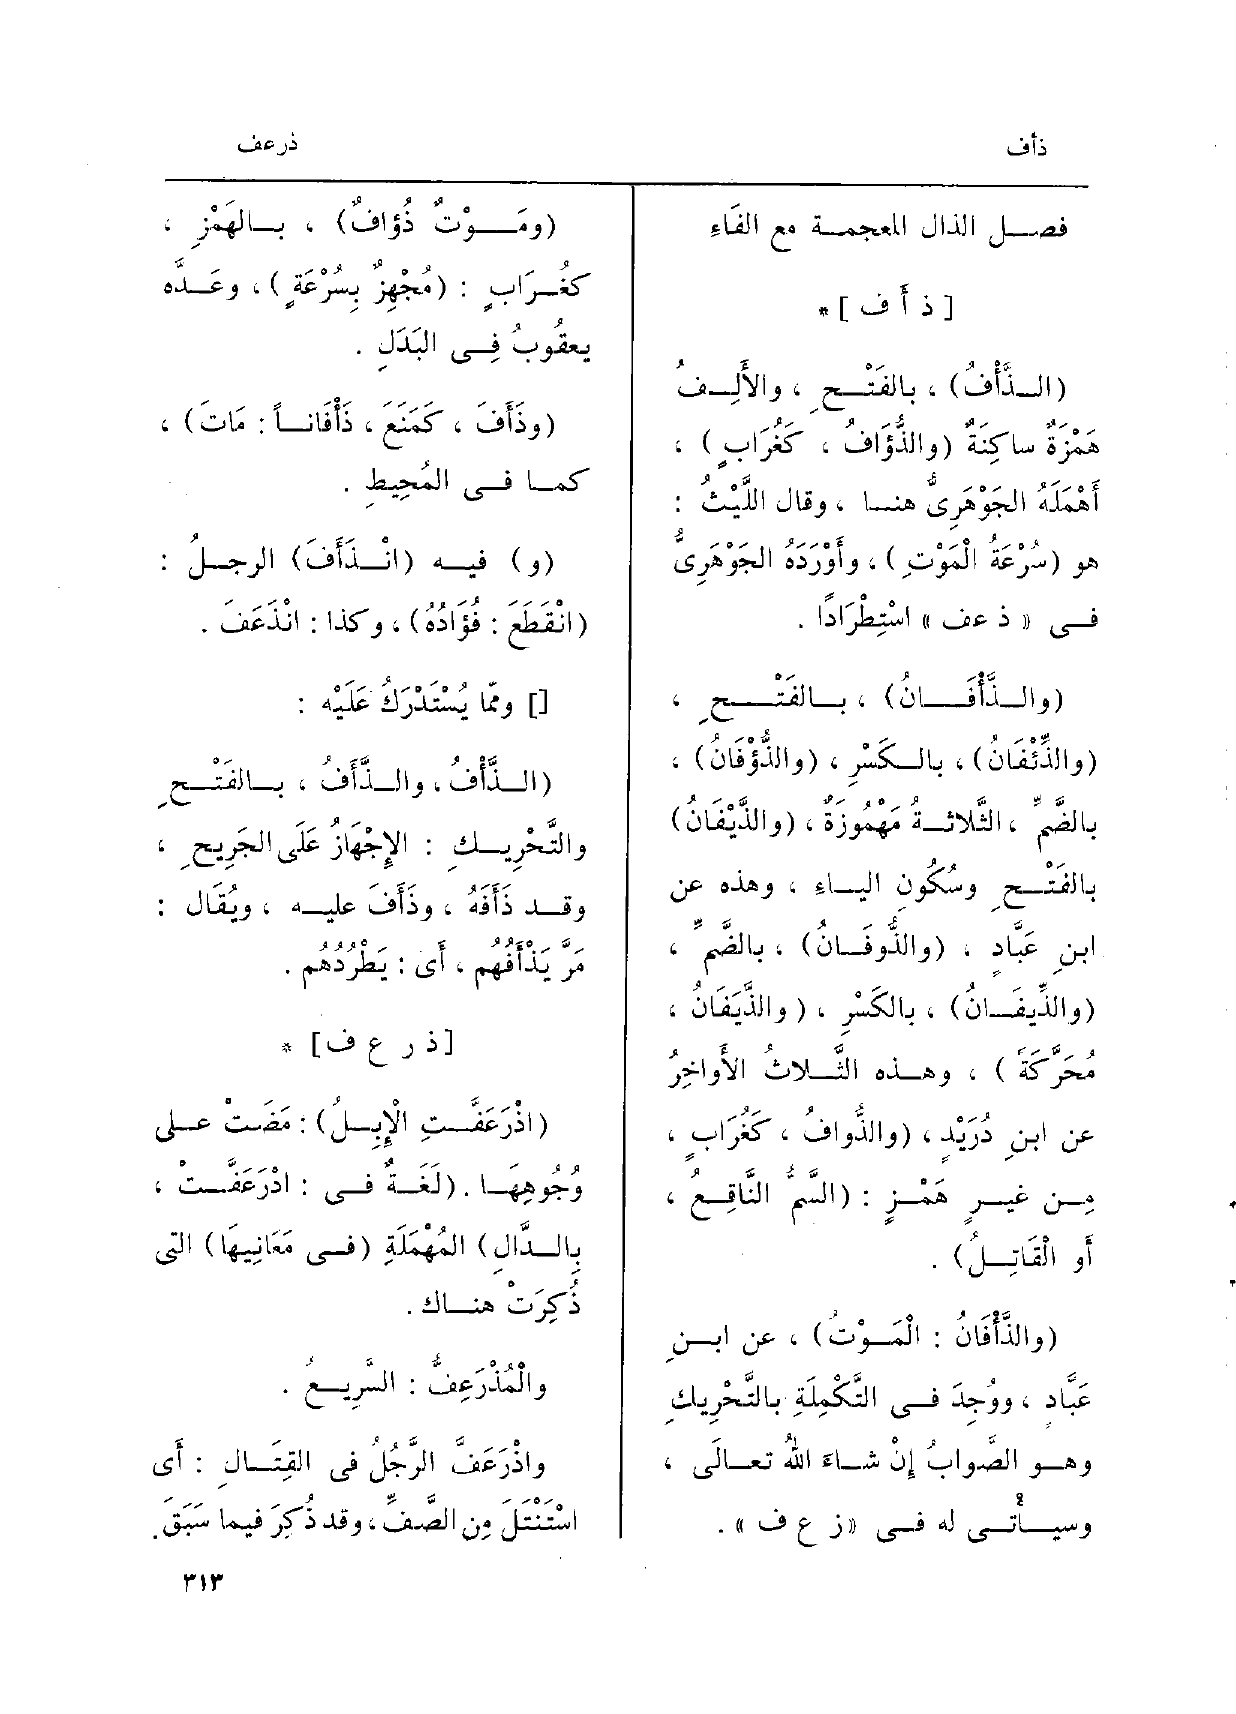 ذأف
ذرعف
فصـل الذال المعجمـة مع الفَاءِ
[ ذ أ ف ] *
(الـذَّأْفُ) ، بالفَتْـحِ ، والأَلِـفُ
هَمْزَةٌ ساكِنَةٌ (والذُّؤَافُ ، كَغُرَابٍ) ،
أَهْمَلَهُ الجَوْهَرِىُّ هنـا ، وقال اللَّيْثُ :
هو (سُرْعَةُ الْمَوْتِ) ، وأَوْرَدَهُ الجَوْهَرِىُّ
فـى « ذ عف » اسْتِطْرَادًا .
(والـذَّأْفَـانُ) ، بـالفَتْـحِ ،
(والذِّئْفَانُ) ، بالـكَسْرِ ، (والذُّؤْفَانُ) ،
بالضَّمِّ ، الثَّلاثـةُ مَهْمُوزَةٌ ، (والذَّيْفَانُ)
بالفَتْـحِ وسُكُونِ اليـاءِ ، وهذه عن
ابنِ عَبَّادٍ ، (والذُّوفَـانُ) ، بالضَّمِّ ،
(والذِّيفَـانُ) ، بالكَسْرِ ، (والذَّيَفَانُ ،
مُحَرَّكَةً ) ، وهـذه الثَّـلاثُ الأَواخِرُ
عن ابنِ دُرَيْدٍ ، (والذُّوافُ ، كَغُرَابٍ ،
مِـن غيـرِ هَمْـزٍ : (السَّمُّ النَّاقِـعُ ،
أَو الْقَاتِـلُ) .
(والذَّأْفَانُ : الْمَـوْتُ) ، عن ابـنِ
عَبَّادٍ ، ووُجِدَ فـى التَّكْمِلَةِ بالتَّحْرِيكِ
وهـو الصَّوابُ إِنْ شـاءَ اللهُ تعـالَى ،
وسيـأْتـى له فـى «ز ع ف » .
(ومَـوْتٌ ذُؤافٌ) ، بـالهَمْزِ ،
كغُـرَابٍ : (مُجْهِزٌ بِسُرْعَةٍ) ، وعَـدَّه
يعقُوبُ فِـى البَدَلِ .
(وذَأَفَ ، كَمَنَعَ ، ذَأْفَانـاً : مَاتَ) ،
كمـا فـى المُحِيطِ .
(و) فيـه (انْـذَأَفَ) الرجـلُ :
(انْقَطَعَ : فُؤَادُهُ) ، وكذا : انْذَعَفَ .
[] ومّا يُسْتَدْرَكُ عَلَيْه :
(الـذَّأْفُ ، والـذَّأَفُ ، بـالفَتْـحِ
والتَّحْرِيـكِ : الإِجْهَازُ عَلَى الجَرِيحِ ،
وقـد ذَأَفَهُ ، وذَأَفَ عليـه ، ويُقَال :
مَرَّ يَذْأَفُهُم ، أَى : يَطْرُدُهم .
[ذ ر ع ف] *
(اذْرَعَفَّـتِ الْإِبِـلُ) : مَضَتْ عـلى
وُجُوهِهَـا . (لُغَـةٌ فـى : ادْرَعَفَّـتْ ،
بالـدَّالِ) المُهْمَلَةِ (فـى مَعَانِيهَا) التى
ذُكِرَتْ هنـاك .
والْمُذْرَعِفُّ : السَّرِيـعُ .
واذْرَعَفَّ الرَّجُلُ فى القِتَـالِ : أَى
اسْتَنْتَلَ مِن الصَّفِّ ، وقد ذُكِرَ فيما سَبَق .
٣١٣